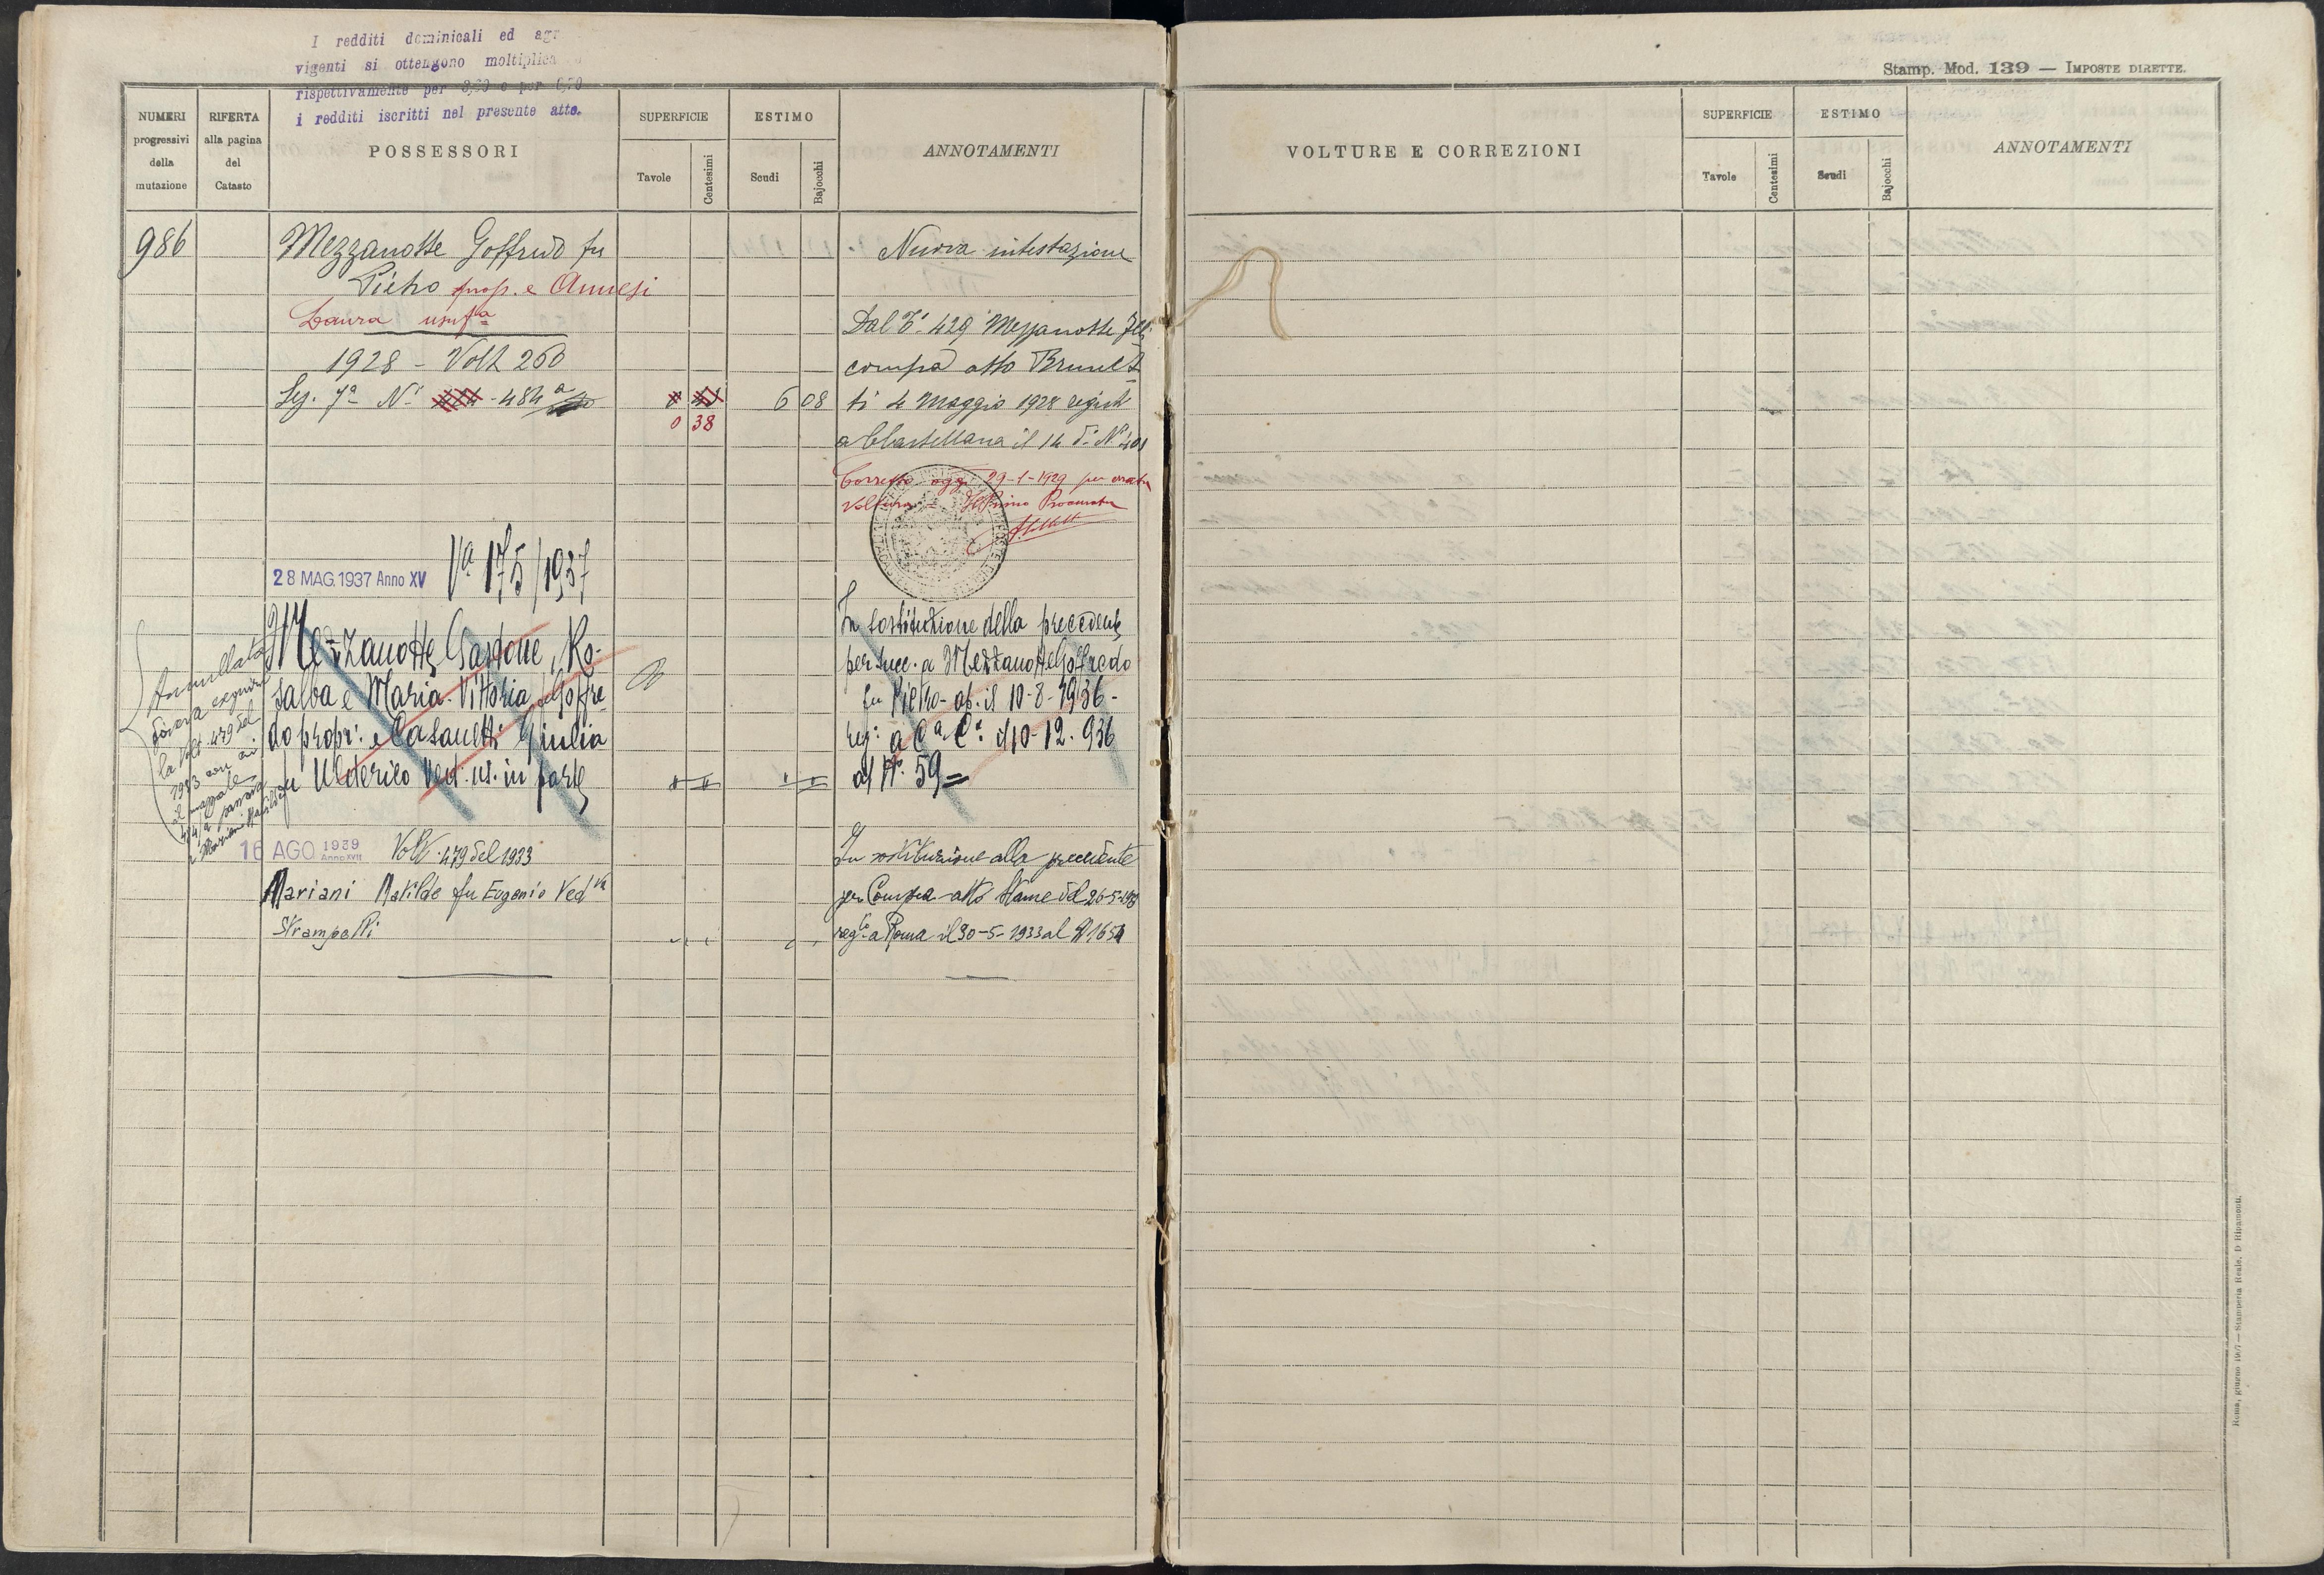 I redditi dominicali ed agr
vigenti si ottengono moltiplica
rispettivamente per 8,60 e per 6,70
i redditi iscritti nel presente atto.
Stamp. Mod. 139 — IMPOSTE DIRETTE.
NUMERI progressivi della mutazione
RIFERTA alla pagina del Catasto
POSSESSORI
SUPERFICIE
Tavole
Centesimi
ESTIMO
Scudi
Bajocchi
ANNOTAMENTI
986
Mezzanotte Goffredo fu
Pietro prop. e Annesi
Laura usufa
1928 - Volt 260
Sez. 7a N. 484 a
6 08
0 38
Nuova intestazione
Dal T. 429 Mezzanotte
compa atto Brunet
ti 4 Maggio 1928 regist
a Castellana il 14 di N.
Corretto oggi 29-1-1929 per errata
voltura Il Primo Procuratore
28 MAG.1937 Anno XV
Va 175/1937
Mezzanotte Gastone, Ro-
salba e Maria Vittoria del Goffre-
do propr: e Casanetti Giulia
fu Ulderico Ved. us. in parte
In sostituzione della precedente
per succ. a Mezzanotte Goffredo
fu Pietro - ap. il 10-8-1936-
reg: a Ca Ca il 10-12-936
al N. 59=
Annullata
dovendo eseguire
la Volt. 479 del
1933 con cui
il mappale
484/a passa
a Mariani Matilde
16 AGO 1939 Anno XVII
Volt. 479 del 1933
Mariani Matilde fu Eugenio Ved va
Strampelli
In sostituzione alla precedente
per Compra atto Stame del 26-5-1933
regto a Roma il 30-5-1933 al
VOLTURE E CORREZIONI
SUPERFICIE
Tavole
Centesimi
ESTIMO
Scudi
Bajocchi
ANNOTAMENTI